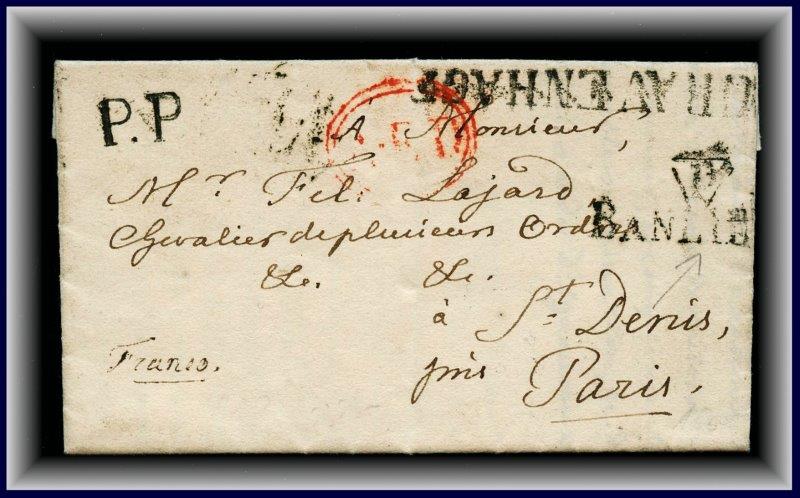 GRAVENHAGE
P.P
À Monsieur,
Mr. Fel. Lajard
Chevalier de plusieurs Ordres
&c. &c.
BANLIE
à St. Denis,
Franco.
près Paris.